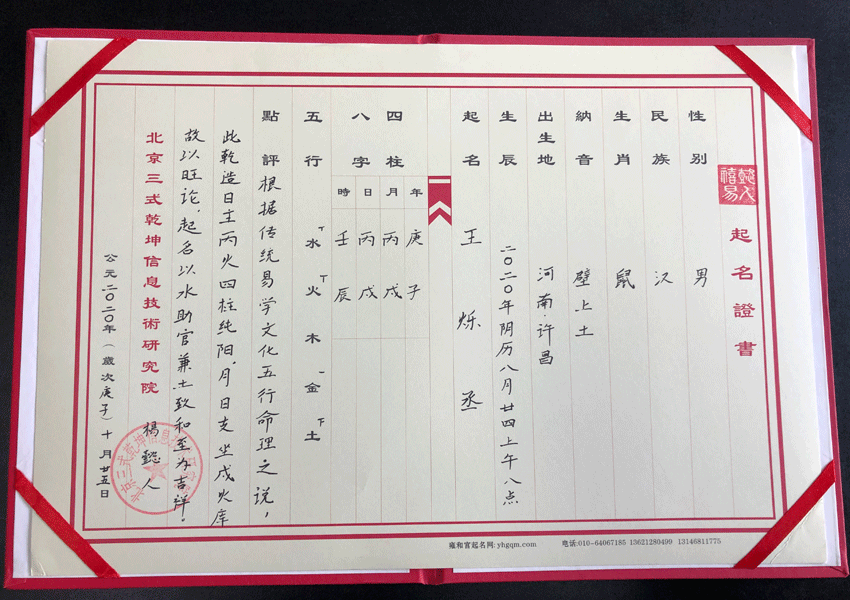 起名證書
性别 男
民族 汉
生肖 鼠
納音 壁上土
出生地 河南·许昌
生辰 二〇二〇年阴历八月廿四上午八点
起名 王烁丞
四柱
八字
年 庚子
月 丙戌
日 丙戌
時 壬辰
五行 丅水 丅火 木 一金 下土
點評 根据传统易学文化五行命理之说，
此乾造日主丙火四柱纯阳，月日支坐戌火库
故以旺论，起名以水助官兼土致和至为吉祥。
北京三式乾坤信息技術研究院 楊懿人
公元二〇二〇年（歲次庚子）十月廿五日
雍和宫起名网:yhgqm.com 电话:010-64067185 13621280499 13146811775